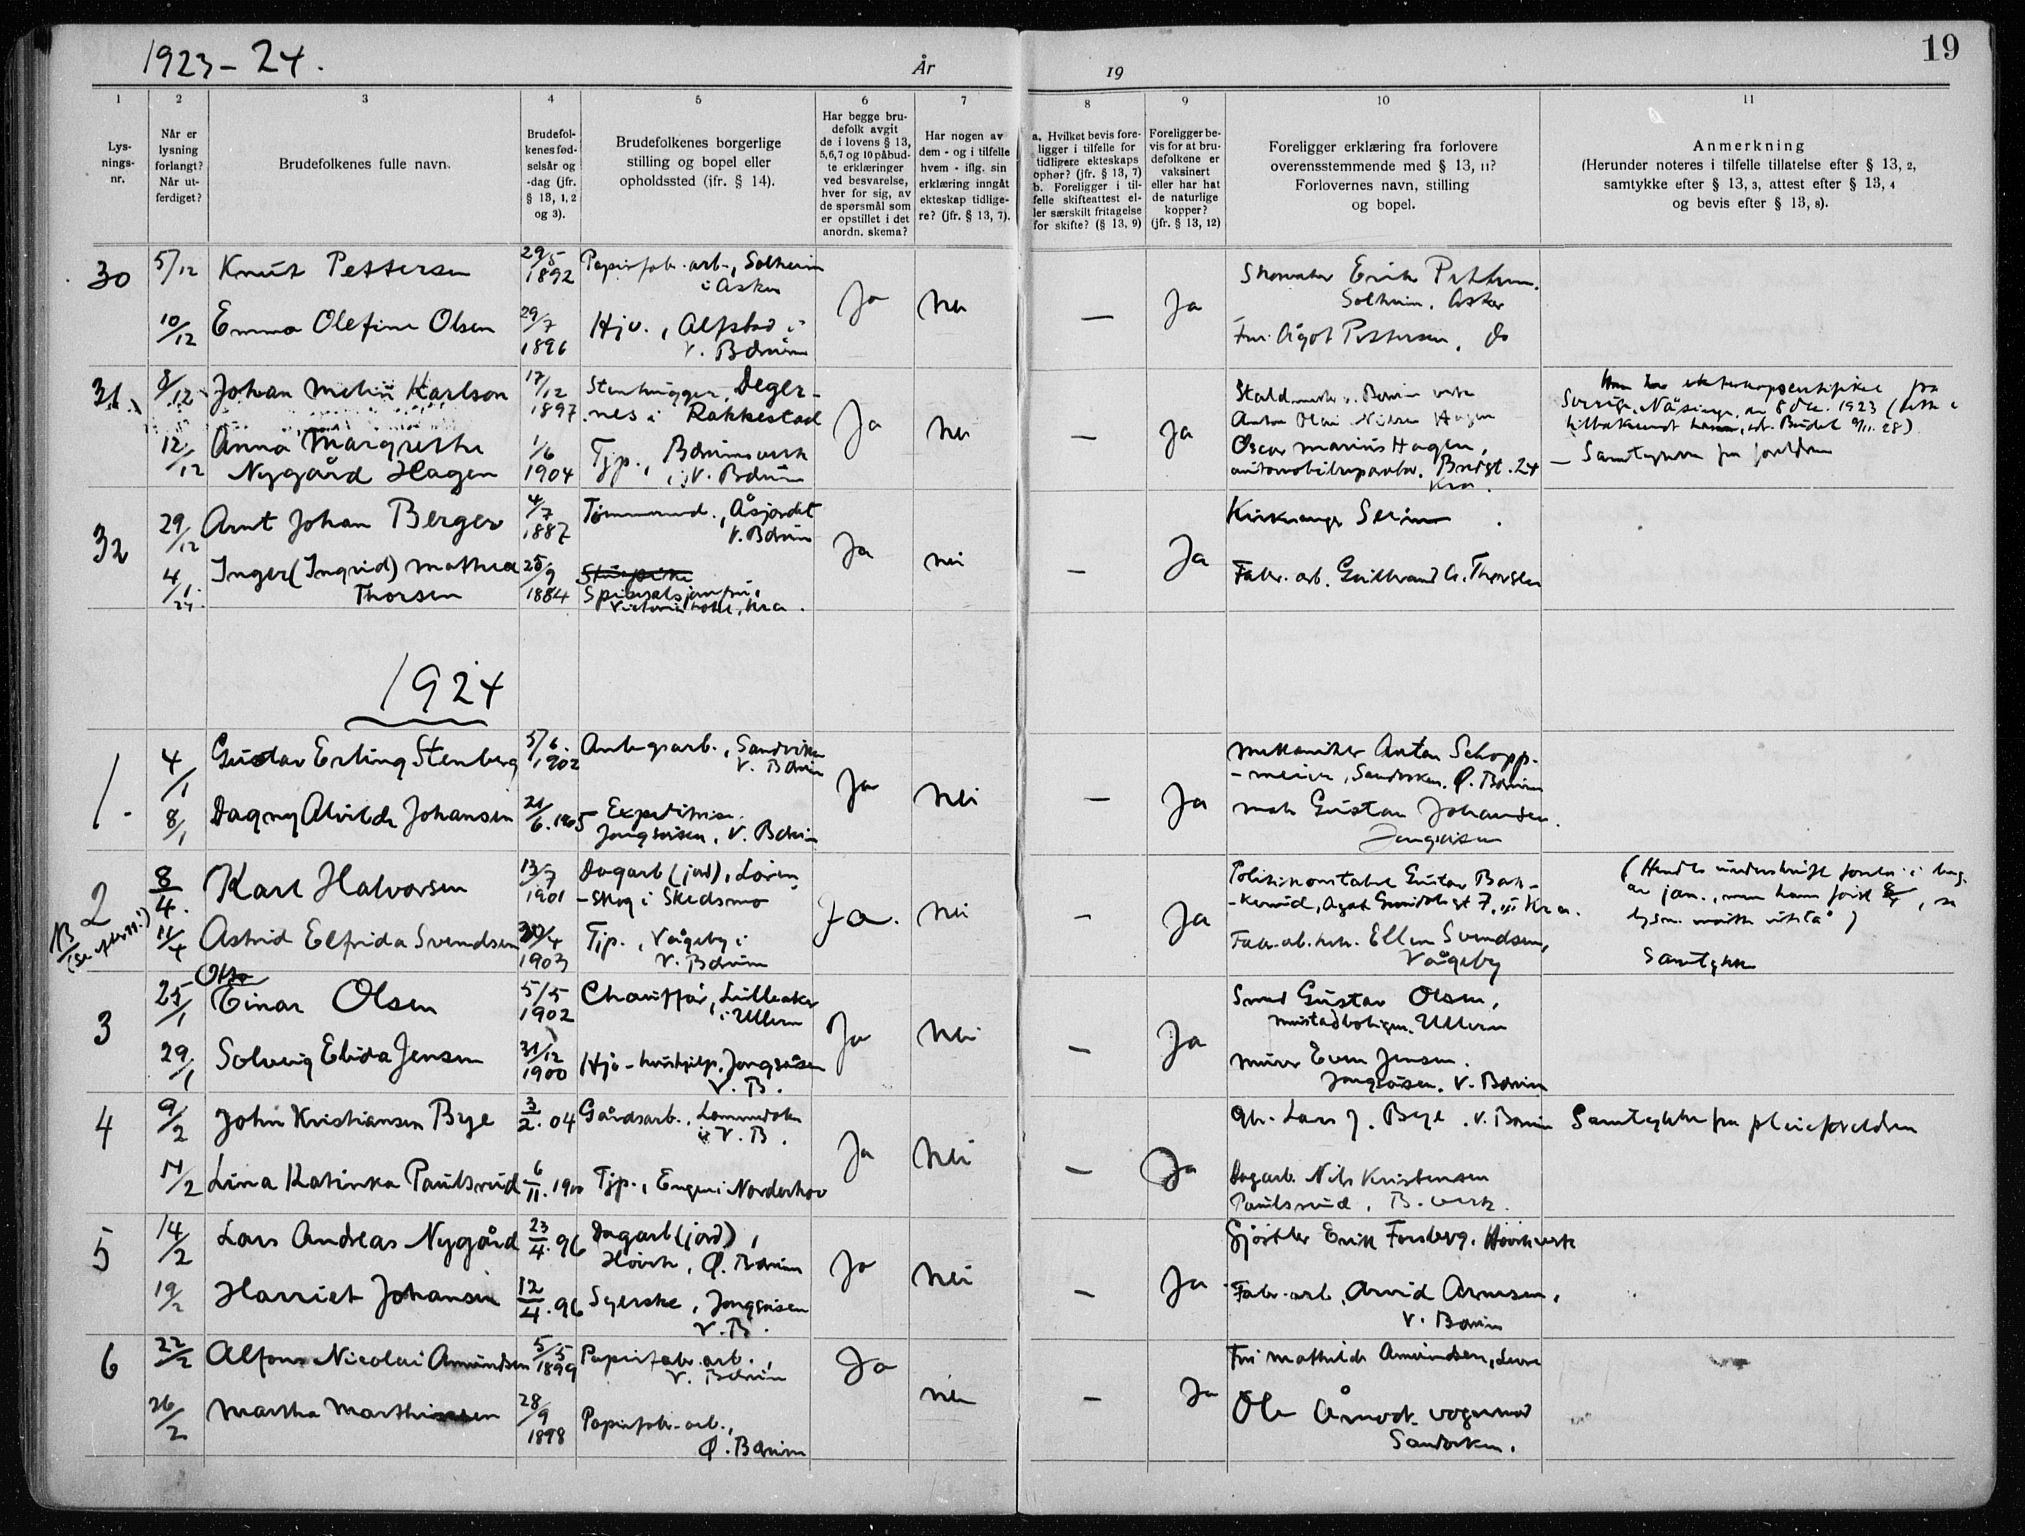 1923-24.
År
19
19
1
2
3
4
5
6
7
8
9
10
11
Lys-
nings-
nr.
Når er
lysning
forlangt?
Når ut-
ferdiget?
Brudefolkenes fulle navn.
Brudefol-
kenes fød-
selsår og
-dag (jfr.
§ 13, 1, 2
og 3).
Brudefolkenes borgerlige
stilling og bopel eller
opholdssted (jfr. § 14).
Har begge bru-
defolk avgit
de i lovens § 13,
5,6,7 og 10 påbud-
te erklæringer
ved besvarelse,
hver for sig, av
de spørsmål som
er opstillet i det
anordn. skema?
Har nogen av
dem - og i tilfelle
hvem - iflg. sin
erklæring inngått
ekteskap tidlige-
re? (jfr. § 13, 7).
a. Hvilket bevis fore-
ligger i tilfelle for
tidligere ekteskaps
ophør? (jfr. § 13, 7)
b. Foreligger i til-
felle skifteattest el-
ler særskilt fritagelse
for skifte? (§ 13, 9)
Foreligger be-
vis for at bru-
defolkene er
vaksinert
eller har hat
de naturlige
kopper?
(jfr. § 13, 12)
Foreligger erklæring fra forlovere
overensstemmende med § 13, 11?
Forlovernes navn, stilling
og bopel.
Anmerkning
(Herunder noteres i tilfelle tillatelse efter § 13, 2,
samtykke efter § 13, 3, attest efter § 13, 4
og bevis efter § 13, 8).
30
5/12
Knut Pettersen
29/5
1892
Papirfabr.arb., Solheim
i Asker
Ja
nei
—
Ja
Erik Pettersen.
Solheim. Asker
10/12
Emma Olefine Olsen
29/7
1896
Hjv., Alfstad i
V. Bærum
Fru Ågot Pettersen, do
31
8/12
Johan Melin Karlson
17/12
1897
Stenhugger, Deger-
nes i Rakkestad
Ja
nei
—
Ja
Anton Olai Nilsen Hagen
Sverige, Näsinge, av 8 des. 1923
12/12
Anna Margrethe
Nygård Hagen
1/6
1904
Tjp., Bærumsverk
i V. Bærum
Oscar Marius Hagen,
automobilreparatør, 24
Kra.
— Samtykke fra foreldre
32
29/12
Arnt Johan Berger
4/7
1887
Tømmermd., Åsjordet
V. Bærum
Ja
nei
—
Ja
Kirkesanger
4/1
24.
Inger (Ingrid) Mathea
Thorsen
25/9
1884
Stuepike
Spisesalsjomfru,
Victoria hotel, Kra.
Fabr. arb. Gulbrand A. Thorsen
1924
1.
4/1
Gustav Erling Stenberg
5/6.
1902
Anlegsarb., Sandviken
V. Bærum
Ja
nei
—
Ja
Mekaniker Anton Schopp-
-meier, Sandviken, Ø. Bærum
8/1
Dagny Alvilde Johansen
21/6. 1905
Expeditrise.
Jongsåsen, V. Bærum
Gustav Johansen.
Jongsåsen
NB
(se efter 11!)
2
8/4.
Karl Halvorsen
13/7
1901
Dagarb (jord), Løren-
-skog i Skedsmo
Ja.
nei
—
Ja
Politikonstabel Gustav Bak-
-kerud, Agat 7, III Kra.
11/4
Astrid Elfrida Svendsen
20/4
1903
Tjp., Vågeby i
V. Bærum
Fabr.arb. Ellen Svendsen,
Vågeby
Samtykke
3
25/1
Einar Olsen
5/5
1902
Chauffør, Lilleaker
i Ullern
Ja
nei
—
Ja
Smed Gustav Olsen,
Mustadboligen. Ullern
29/1
Solveig Elida Jensen
31/12
1900
Hjv-hushjelp. Jongsåsen
V. B.
Murer Even Jensen.
Jongsåsen. V. Bærum
4
9/2
John Kristiansen Bye
3/2. 04
Gårdsarb., Lommedalen
i V. B.
Ja
nei
—
Ja
Gbr. Lars J. Bye. V. Bærum
Samtykke fra pleieforeldre
11/2
Lina Katinka Paulsrud
6/11. 1900
Tjp., Enger i Norderhov
Dagarb. Nils Kristensen
Paulsrud, B. verk.
5
14/2
Lars Andreas Nygård
23/4. 96
Dagarb (jord),
Høvik, Ø. Bærum
Ja
nei
—
Ja
Gjørtler Erik Forsberg. Høvikverk
19/2
Harriet Johansen
12/4. 96
Syerske, Jongsåsen
V. B.
Fabr. arb. Arvid Arnesen,
V. Bærum
6
22/2
Alfons Nicolai Amundsen
5/5
1899
Papirfabr. arb.,
V. Bærum
Ja
nei
—
Ja
Fru Mathilde Amundsen,
26/2
Martha Marthinsen
28/9
1898
Papirfabr. arb.,
Ø. Bærum
Ole Åmodt. vognmand
Sandviken.